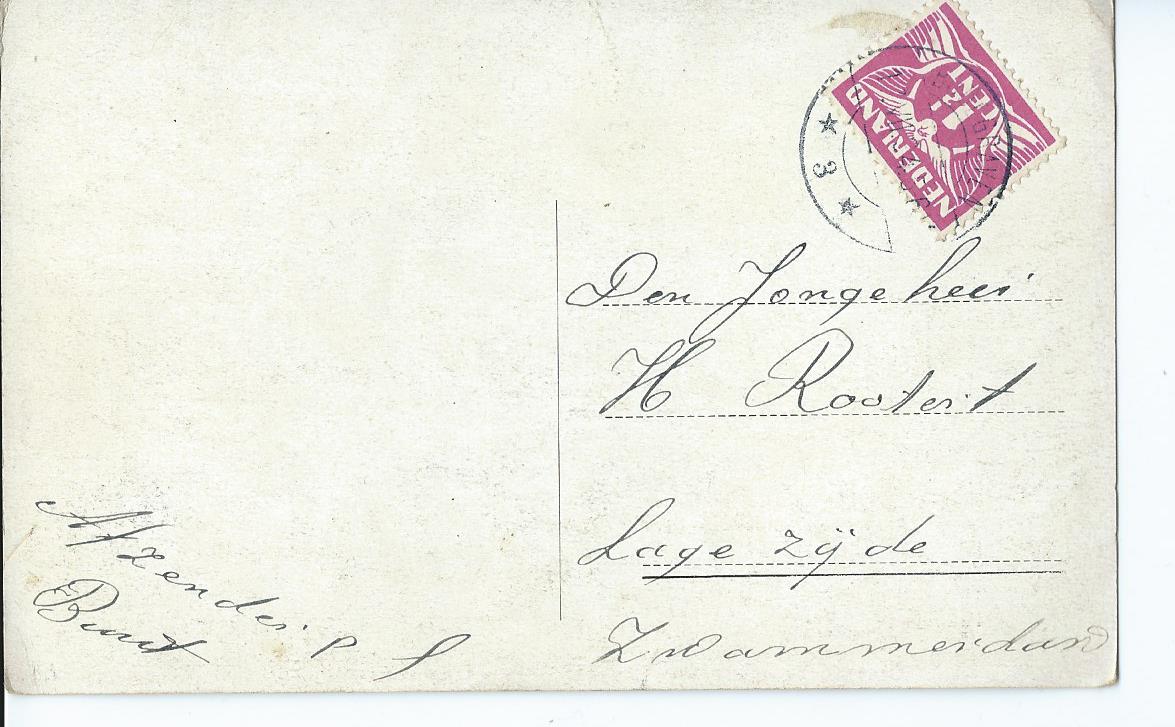 NEDERLAND
1½
CENT
3
Den Jongeheer
H Rootert
Lage zijde
Zwammerdam
Afzender P J
Buut